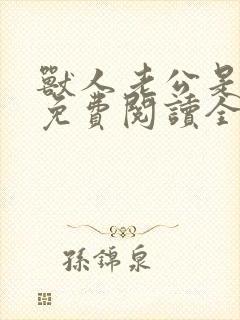 獸人老公是
免費閱讀全
孫錦泉